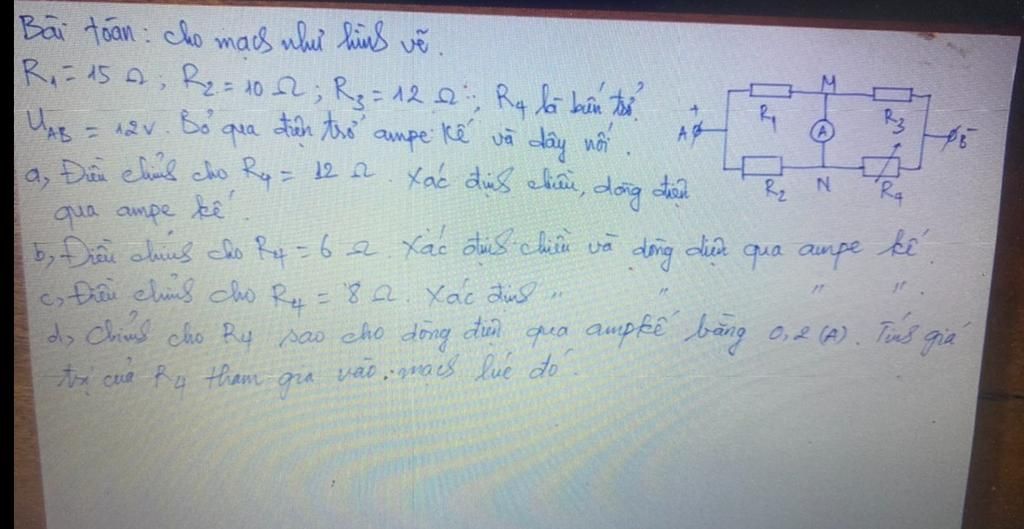 Bài toán: cho mạch như hình vẽ.
R₁ = 15 Ω; R₂ = 10 Ω; R₃ = 12 Ω; R₄ là biến trở.
U_AB = 12V. Bỏ qua điện trở ampe kế và dây nối.
a, Điều chỉnh cho R₄ = 12 Ω. Xác định chiều, dòng điện
qua ampe kế.
b, Điều chỉnh cho R₄ = 6 Ω Xác định chiều và dòng điện qua ampe kế.
c, Điều chỉnh cho R₄ = 8 Ω. Xác định " " " ".
d, Chỉnh cho R₄ sao cho dòng điện qua ampkế bằng 0,2 (A). Tính giá
trị của R₄ tham gia vào mạch lúc đó.
M
R₁ R₃
+ A A B -
R₂ N R₄